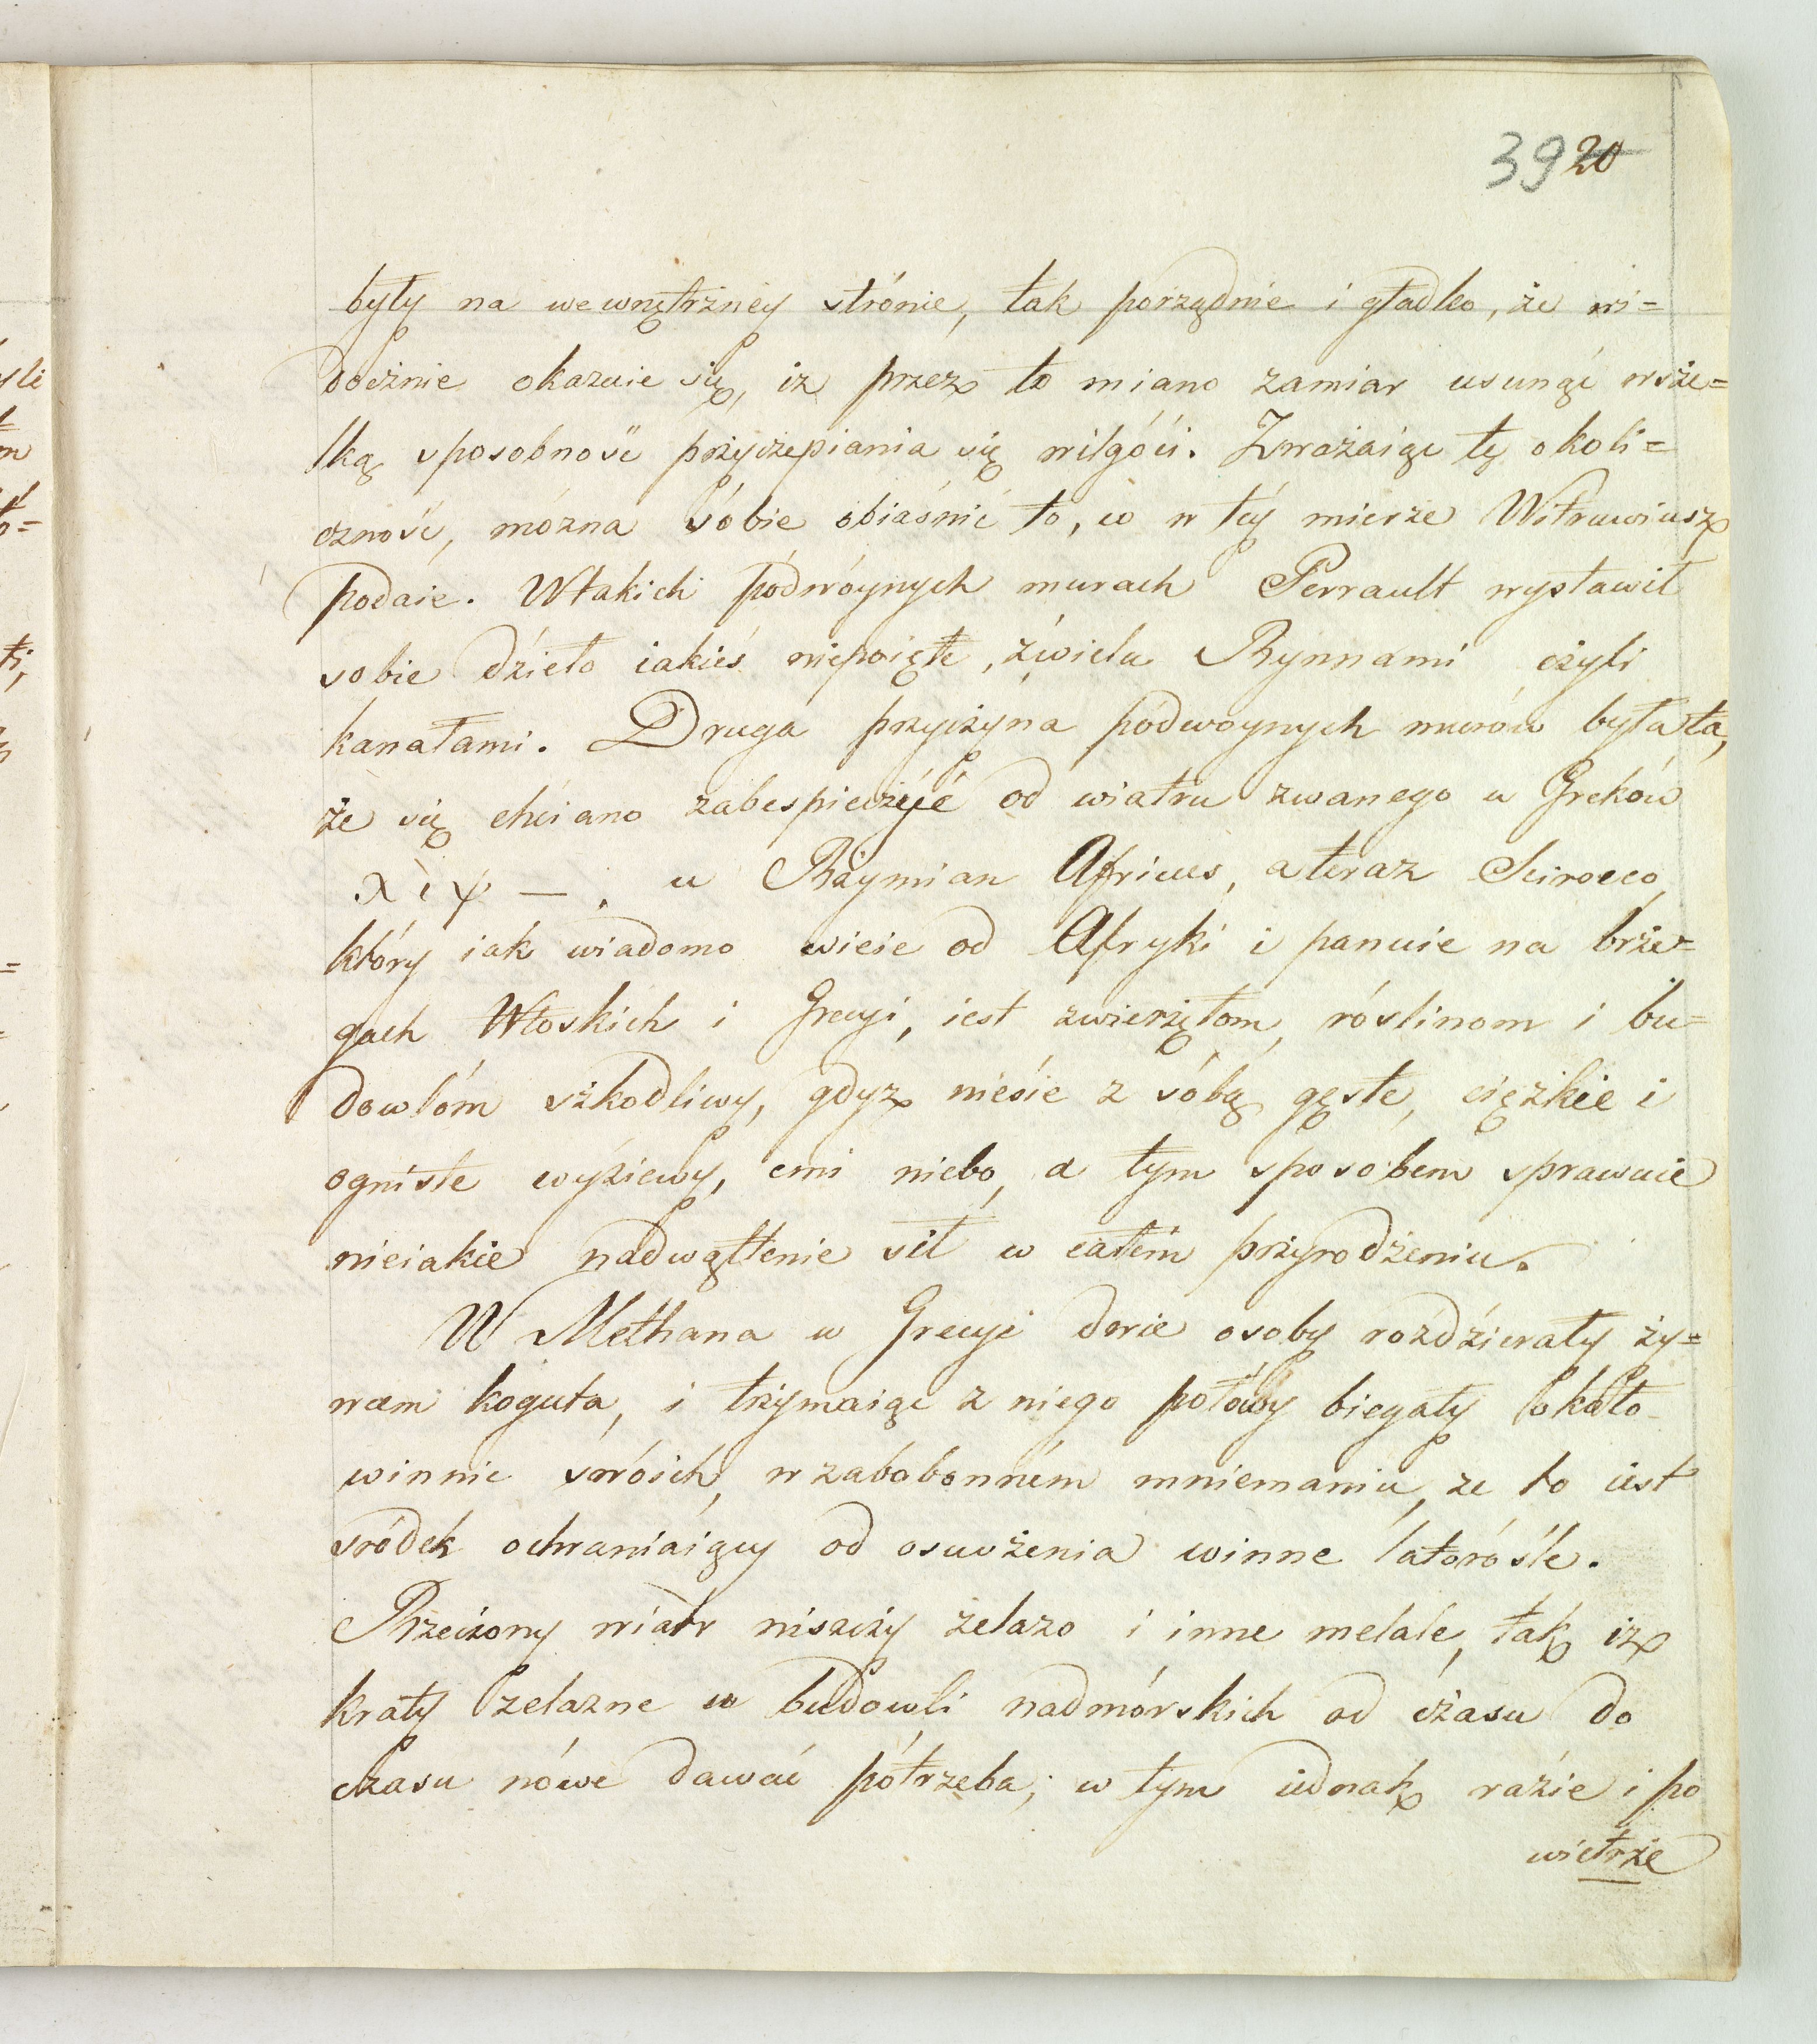 39 20
były na wewnętrzney strónie, tak porządnie i gładko, że wi=
docznie okazuie się, iż przez to miano zamiar usunąć wsze=
lką sposobność przyczepiania się wilgóci. Zważaiąc tę okoli=
czność, mózna sóbie obiaśnić to, co w téy mierze Witruwiusz
podaie. Wtakich pódwóynych murach Perrault wystawił
sobie dzieło iakieś niepoięte, zwielu Rynnami czyli
kanałami. Druga przyczyna pódwoynych murów była ta,
że się chciano zabespieczyć od wiatru zwanego u Greków
λιψ — . u Rzymian Africus, a teraz Scirocco,
który iak wiadomo wieie od Afryki i panuie na brze=
gach Włoskich i Grecyi, iest zwierzętom, róslinom i bu=
dowlóm szkodliwy, gdyz niesie z sóbą gęste, cięzkie i
ogniste wyziewy, cmi niebo, a tym sposobem sprawuie
nieiakie nadwątlenie sił w całém przyrodzeniu.
W Methana w Grecyi dwie osoby rozdzierały ży=
wcem koguta, i trzymaiąc z niego połowy biegały około
winnic swóich, w zabobonném mniemaniu, ze to iest
sródek ochraniaiący od osuszenia winne latoróśle.
Rzeczony wiatr niszczy zelazo i inne metale, tak iz
kraty zelazne w budowli nadmórskich od czasu do
czasu nówe dawać pótrzeba; w tym iednak razie i po
wietrze